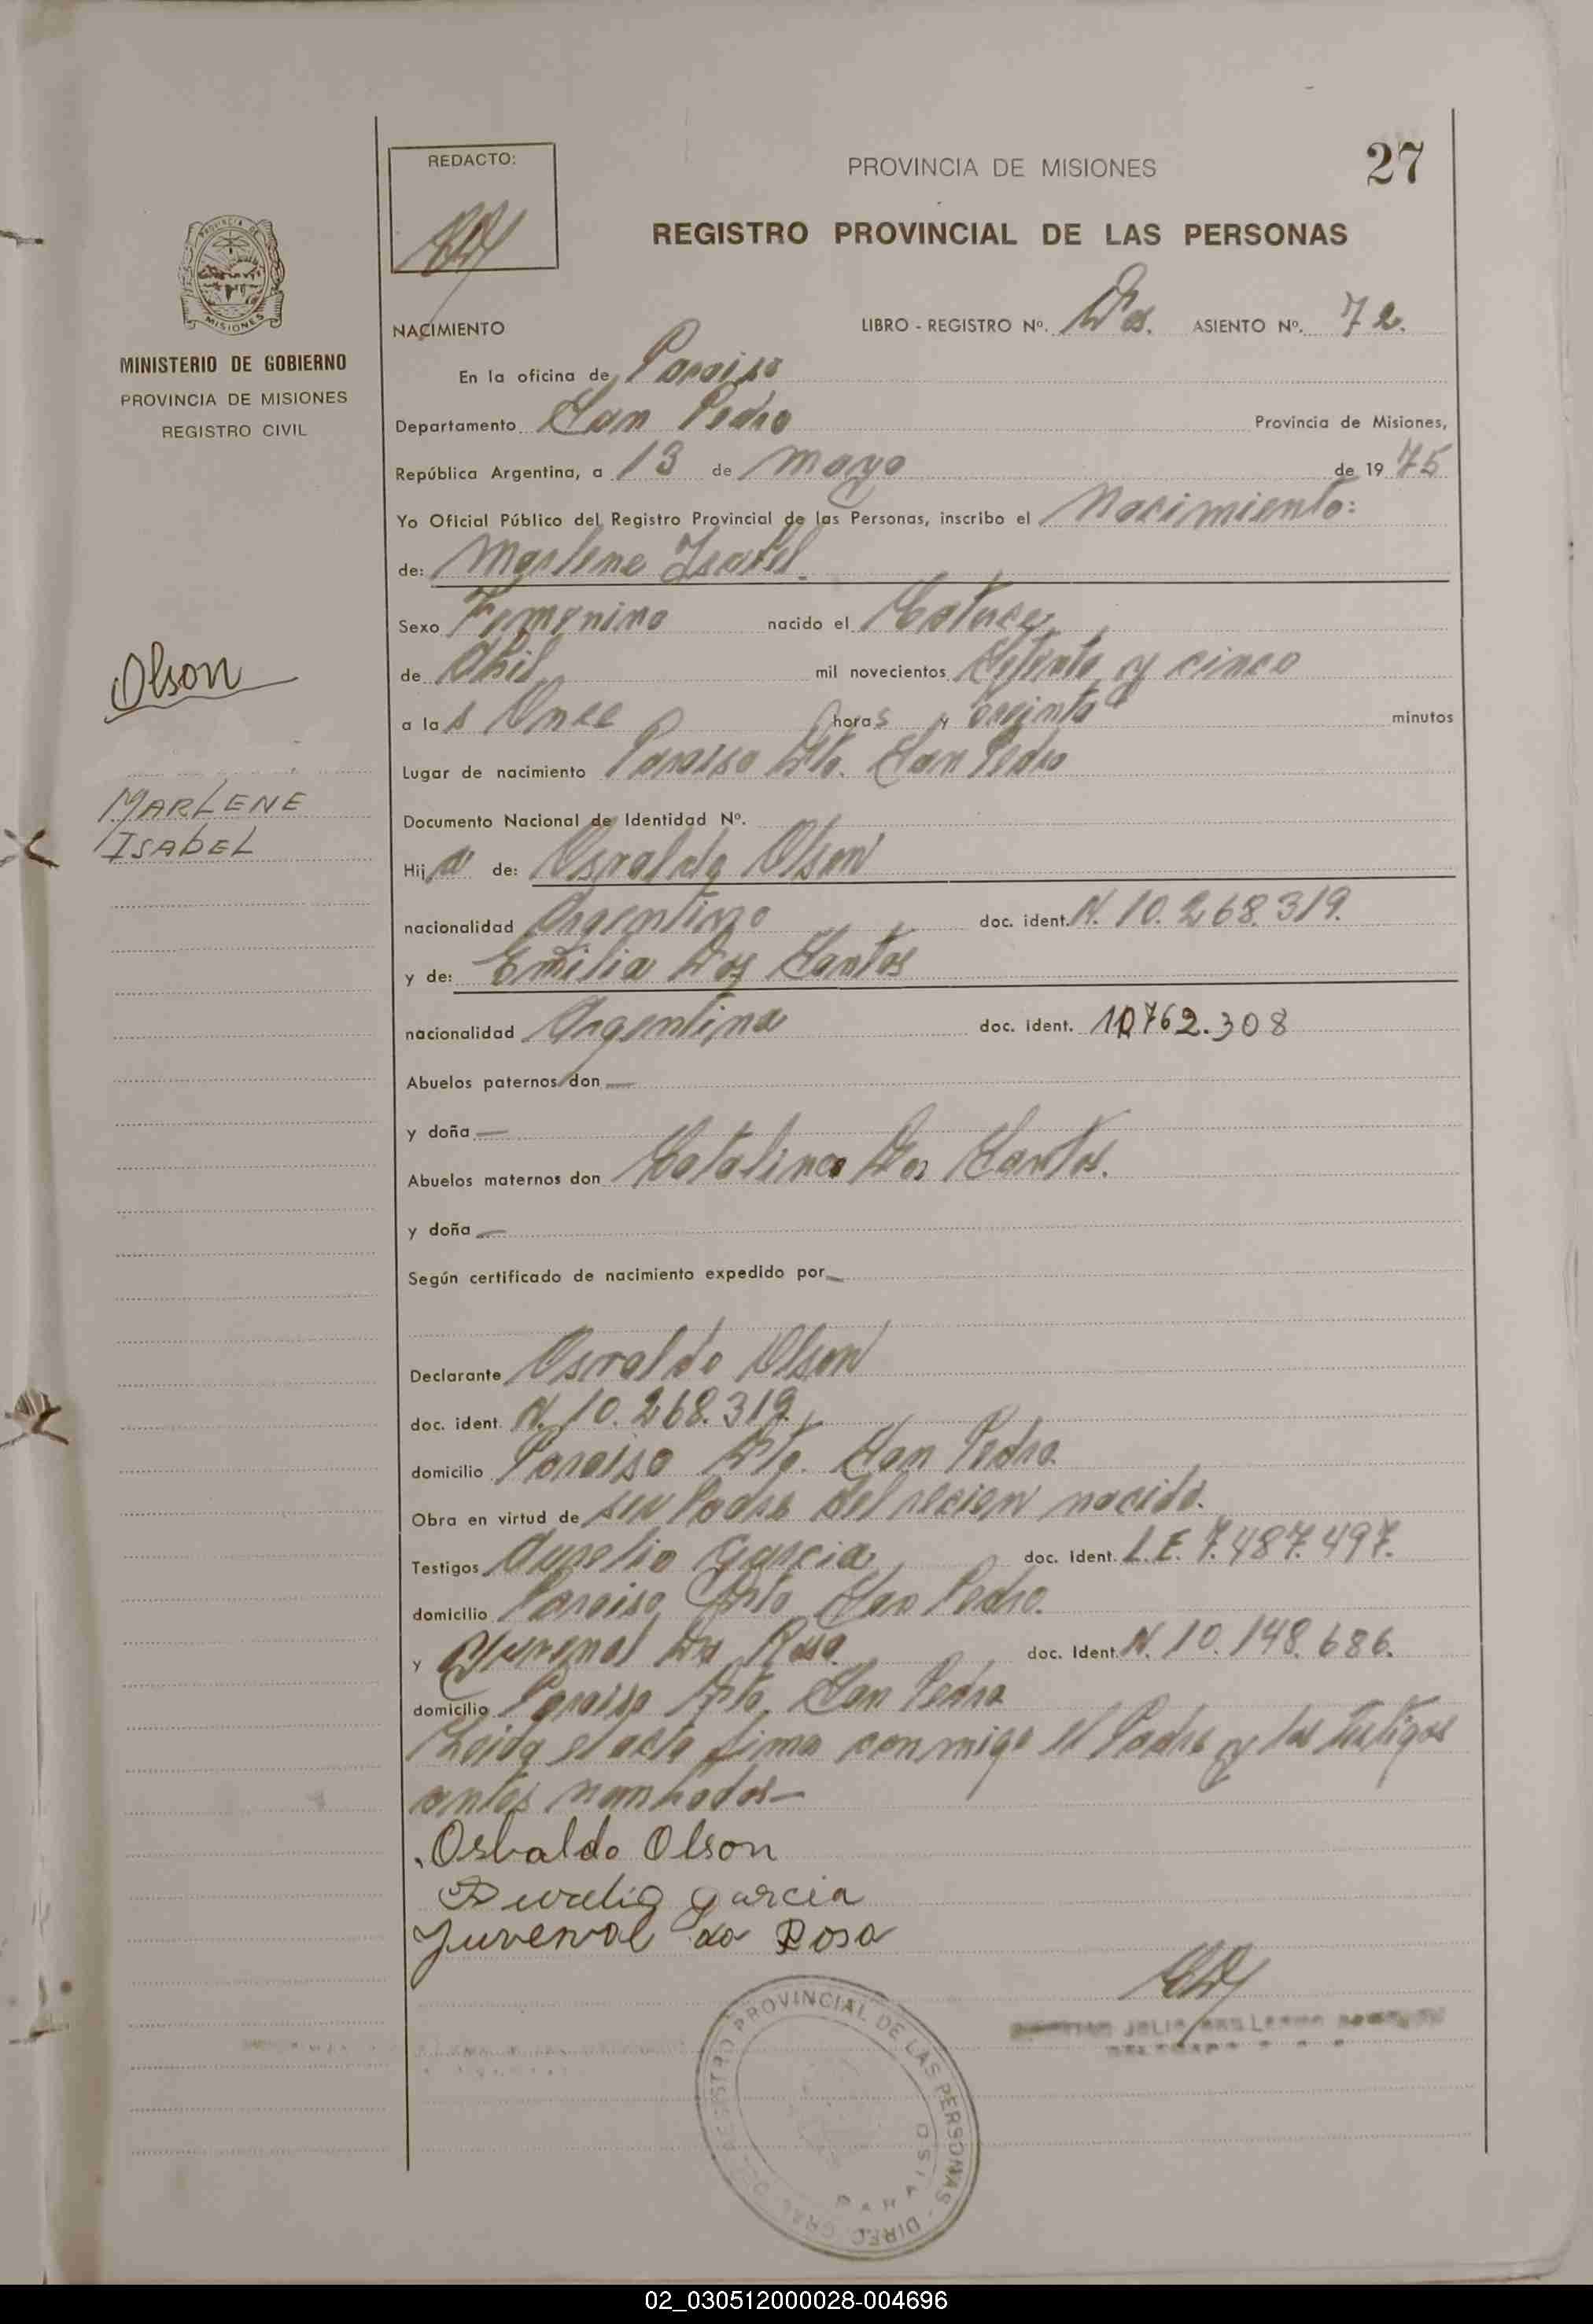 REDACTO:
PROVINCIA DE MISIONES
27
REGISTRO PROVINCIAL DE LAS PERSONAS
PROVINCIA DE MISIONES
MINISTERIO DE GOBIERNO
PROVINCIA DE MISIONES
REGISTRO CIVIL
NACIMIENTO
LIBRO - REGISTRO Nº. Dos. ASIENTO Nº. 72.
En la oficina de Paraiso
Departamento San Pedro Provincia de Misiones,
República Argentina, a 13 de mayo de 1975
Yo Oficial Público del Registro Provincial de las Personas, inscribo el Nacimiento:
de: Marlene Isabel.
Sexo Femenino nacido el Catorce
de Abril mil novecientos Setenta y cinco
a las Once horas y treinta minutos
Lugar de nacimiento Paraiso Dto. San Pedro
Olson
MARLENE
ISAbEL
Documento Nacional de Identidad Nº.
Hija de: Osvaldo Olson
nacionalidad Argentino doc. ident. N. 10.268.319.
y de: Emilia Dos Santos
nacionalidad Argentina doc. ident. 10762.308
Abuelos paternos don —
y doña —
Abuelos maternos don Catalina Dos Santos.
y doña —
Según certificado de nacimiento expedido por —
Declarante Osvaldo Olson
doc. ident. N. 10.268.319.
domicilio Paraiso Dto. San Pedro.
Obra en virtud de ser Padre del recien nacido.
Testigos Aurelio Garcia doc. Ident. L.E. 7.487.497.
domicilio Paraiso Dto San Pedro.
y Juvenal Da Rosa doc. Ident. N. 10.148.686.
domicilio Paraiso Dto. San Pedro
Leida el acta firma conmigo el Padre y los testigos
antes nombrados—
Osbaldo Olson
Aurelio Garcia
Juvenal da Rosa
REGISTRO PROVINCIAL DE LAS PERSONAS - DIREC. GRAL. DEL
PARAISO
02_030512000028-004696